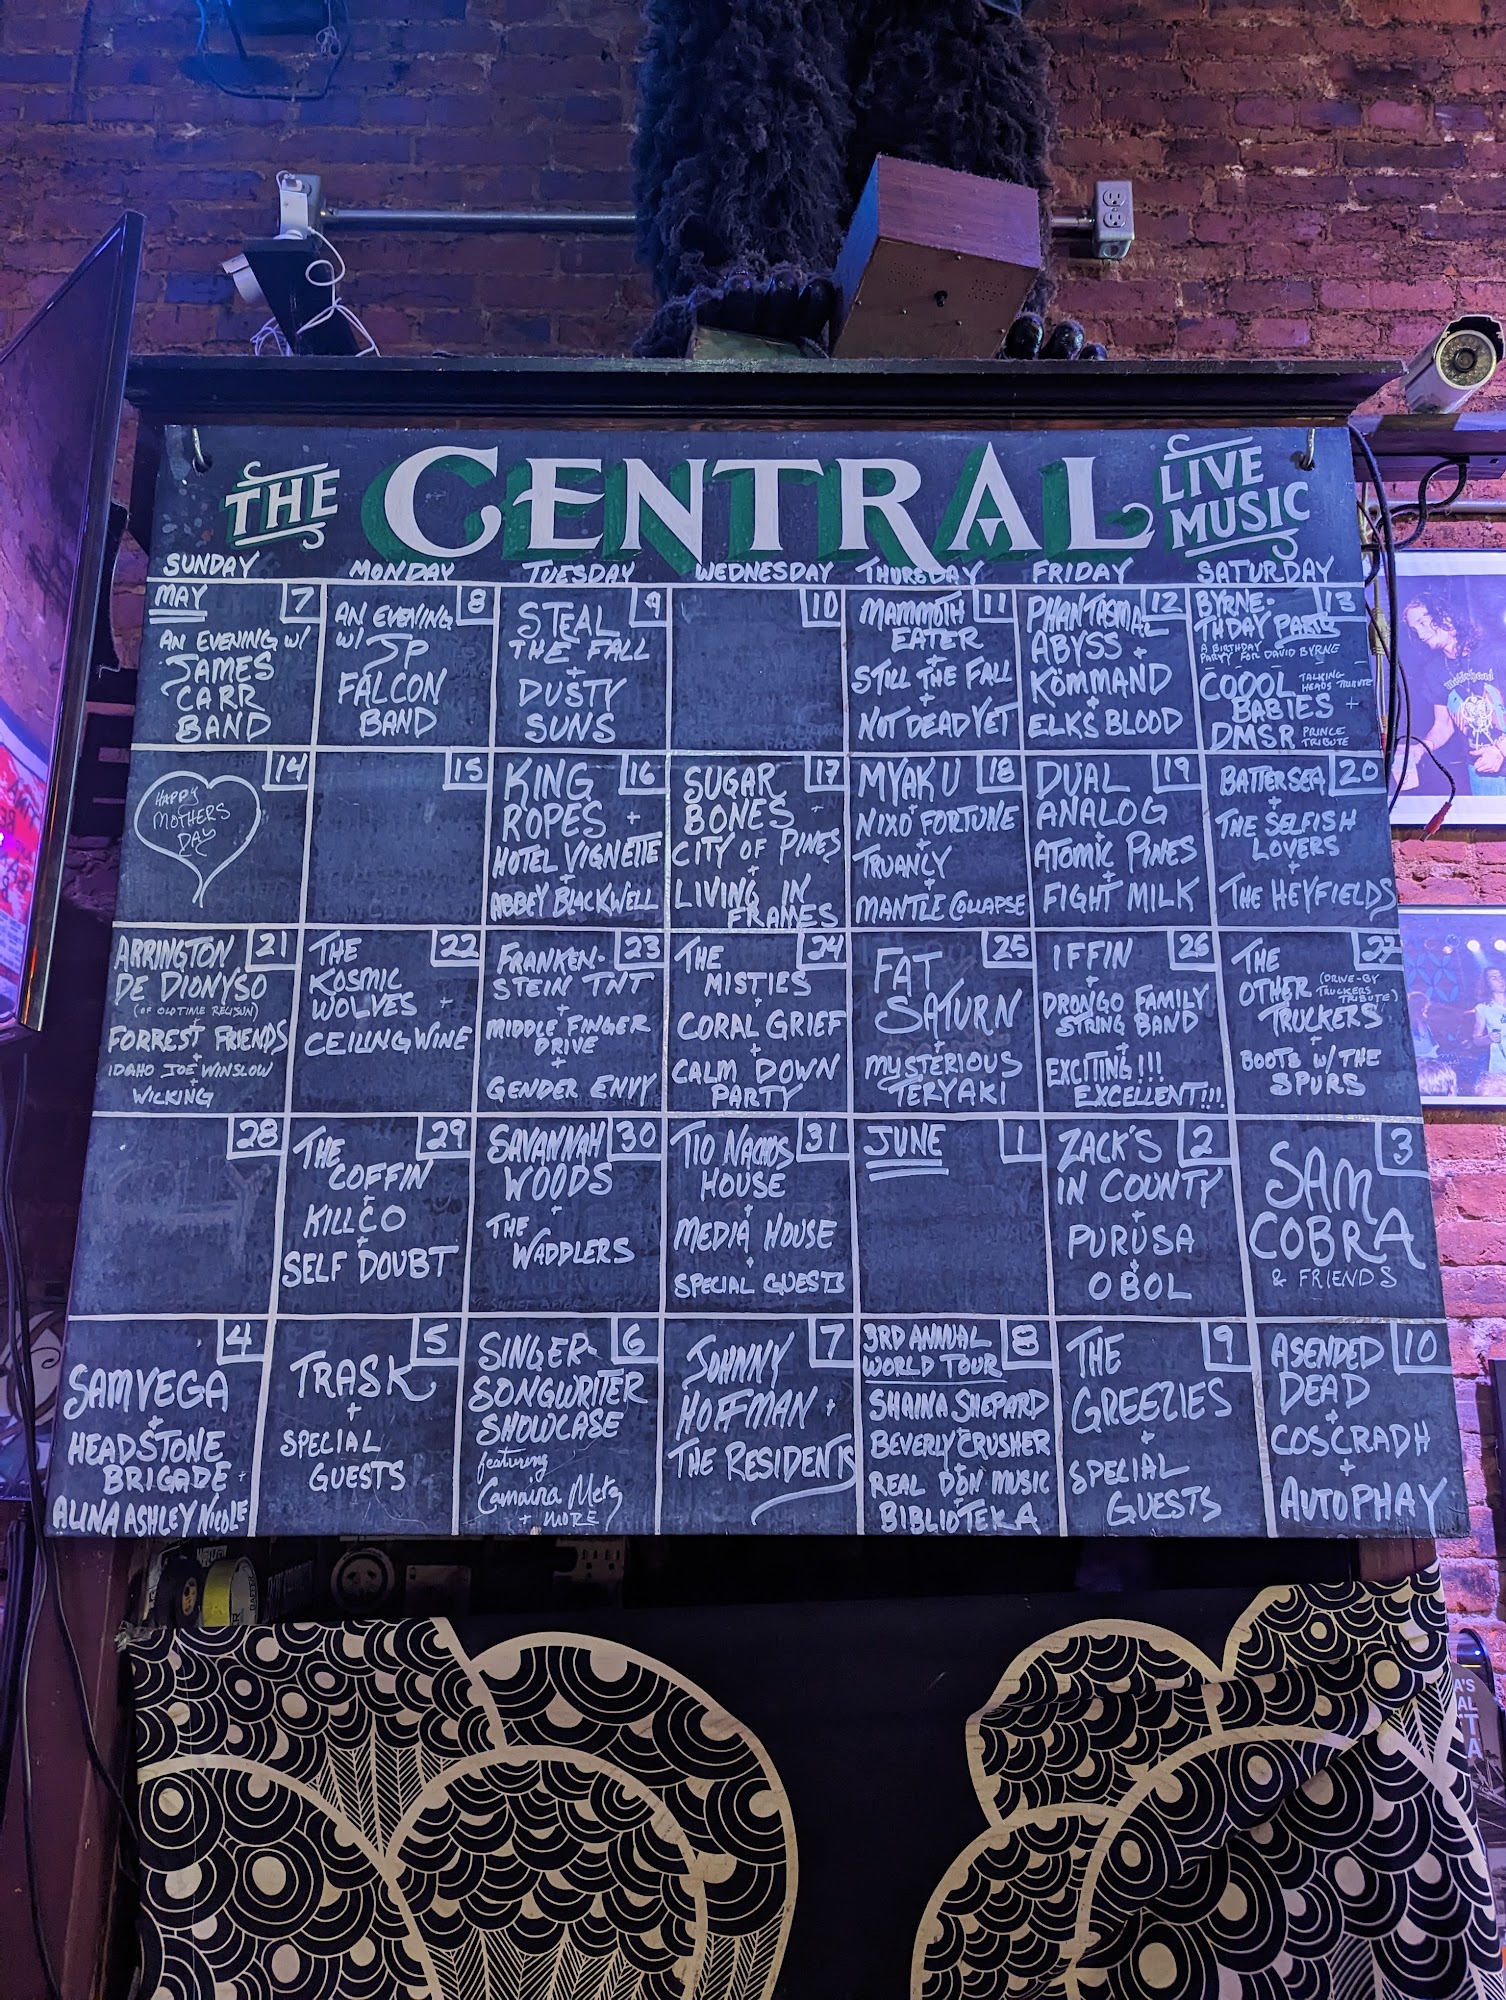 THE CENTRAL LIVE MUSIC
SUNDAY MONDAY TUESDAY WEDNESDAY THURSDAY FRIDAY SATURDAY
MAY 7
AN EVENING W/
JAMES
CARR
BAND
8
AN EVENING
W/ JP
FALCON
BAND
9
STEAL
THE FALL
+
DUSTY
SUNS
10
11
MAMMOTH
EATER
+
STILL THE FALL
+
NOT DEAD YET
12
PHANTASMAL
ABYSS +
KÖMMAND
+
ELKS BLOOD
13
BYRNE-
THDAY PARTY
A BIRTHDAY
PARTY FOR DAVID BYRNE
COOOL TALKING
HEADS TRIBUTE
BABIES +
DMSR PRINCE
TRIBUTE
14
HAPPY
MOTHERS
DAY
15
16
KING
ROPES +
HOTEL VIGNETTE
+
ABBEY BLACKWELL
17
SUGAR
BONES +
CITY OF PINES
+
LIVING IN
FRAMES
18
MYAKU
+
NIXO FORTUNE
+
TRUANCY
+
MANTLE COLLAPSE
19
DUAL
ANALOG
+
ATOMIC PINES
+
FIGHT MILK
20
BATTERSEA
+
THE SELFISH
LOVERS
+
THE HEYFIELDS
21
ARRINGTON
DE DIONYSO
(OF OLD TIME RELIJUN)
+
FORREST FRIENDS
+
IDAHO JOE WINSLOW
+
WICKING
22
THE
KOSMIC
WOLVES +
CEILING WINE
23
FRANKEN-
STEIN TNT
+
MIDDLE FINGER
DRIVE
+
GENDER ENVY
24
THE
MISTIES
+
CORAL GRIEF
+
CALM DOWN
PARTY
25
FAT
SATURN
+
MYSTERIOUS
TERYAKI
26
IFFIN
+
DRONGO FAMILY
STRING BAND
+
EXCITING!!!
EXCELLENT!!!
27
THE
OTHER (DRIVE-BY
TRUCKERS
TRIBUTE)
TRUCKERS
+
BOOTS W/ THE
SPURS
28
29
THE
COFFIN
+
KILLCO
+
SELF DOUBT
30
SAVANNAH
WOODS
+
THE
WADDLERS
31
TIO NACHOS
HOUSE
+
MEDIA HOUSE
+
SPECIAL GUESTS
JUNE 1
2
ZACK'S
IN COUNTY
+
PURUSA
+
OBOL
3
SAM
COBRA
& FRIENDS
4
SAMVEGA
+
HEADSTONE
BRIGADE +
ALINA ASHLEY NICOLE
5
TRASK
+
SPECIAL
GUESTS
6
SINGER-
SONGWRITER
SHOWCASE
featuring
Camaira Metz
+ MORE
7
JOHNNY
HOFFMAN +
THE RESIDENTS
8
3RD ANNUAL
WORLD TOUR
SHAINA SHEPARD
+
BEVERLY CRUSHER
+
REAL DON MUSIC
BIBLIOTEKA
9
THE
GREEZIES
+
SPECIAL
GUESTS
10
ASENDED
DEAD
+
COSCRADH
+
AUTOPHAGY